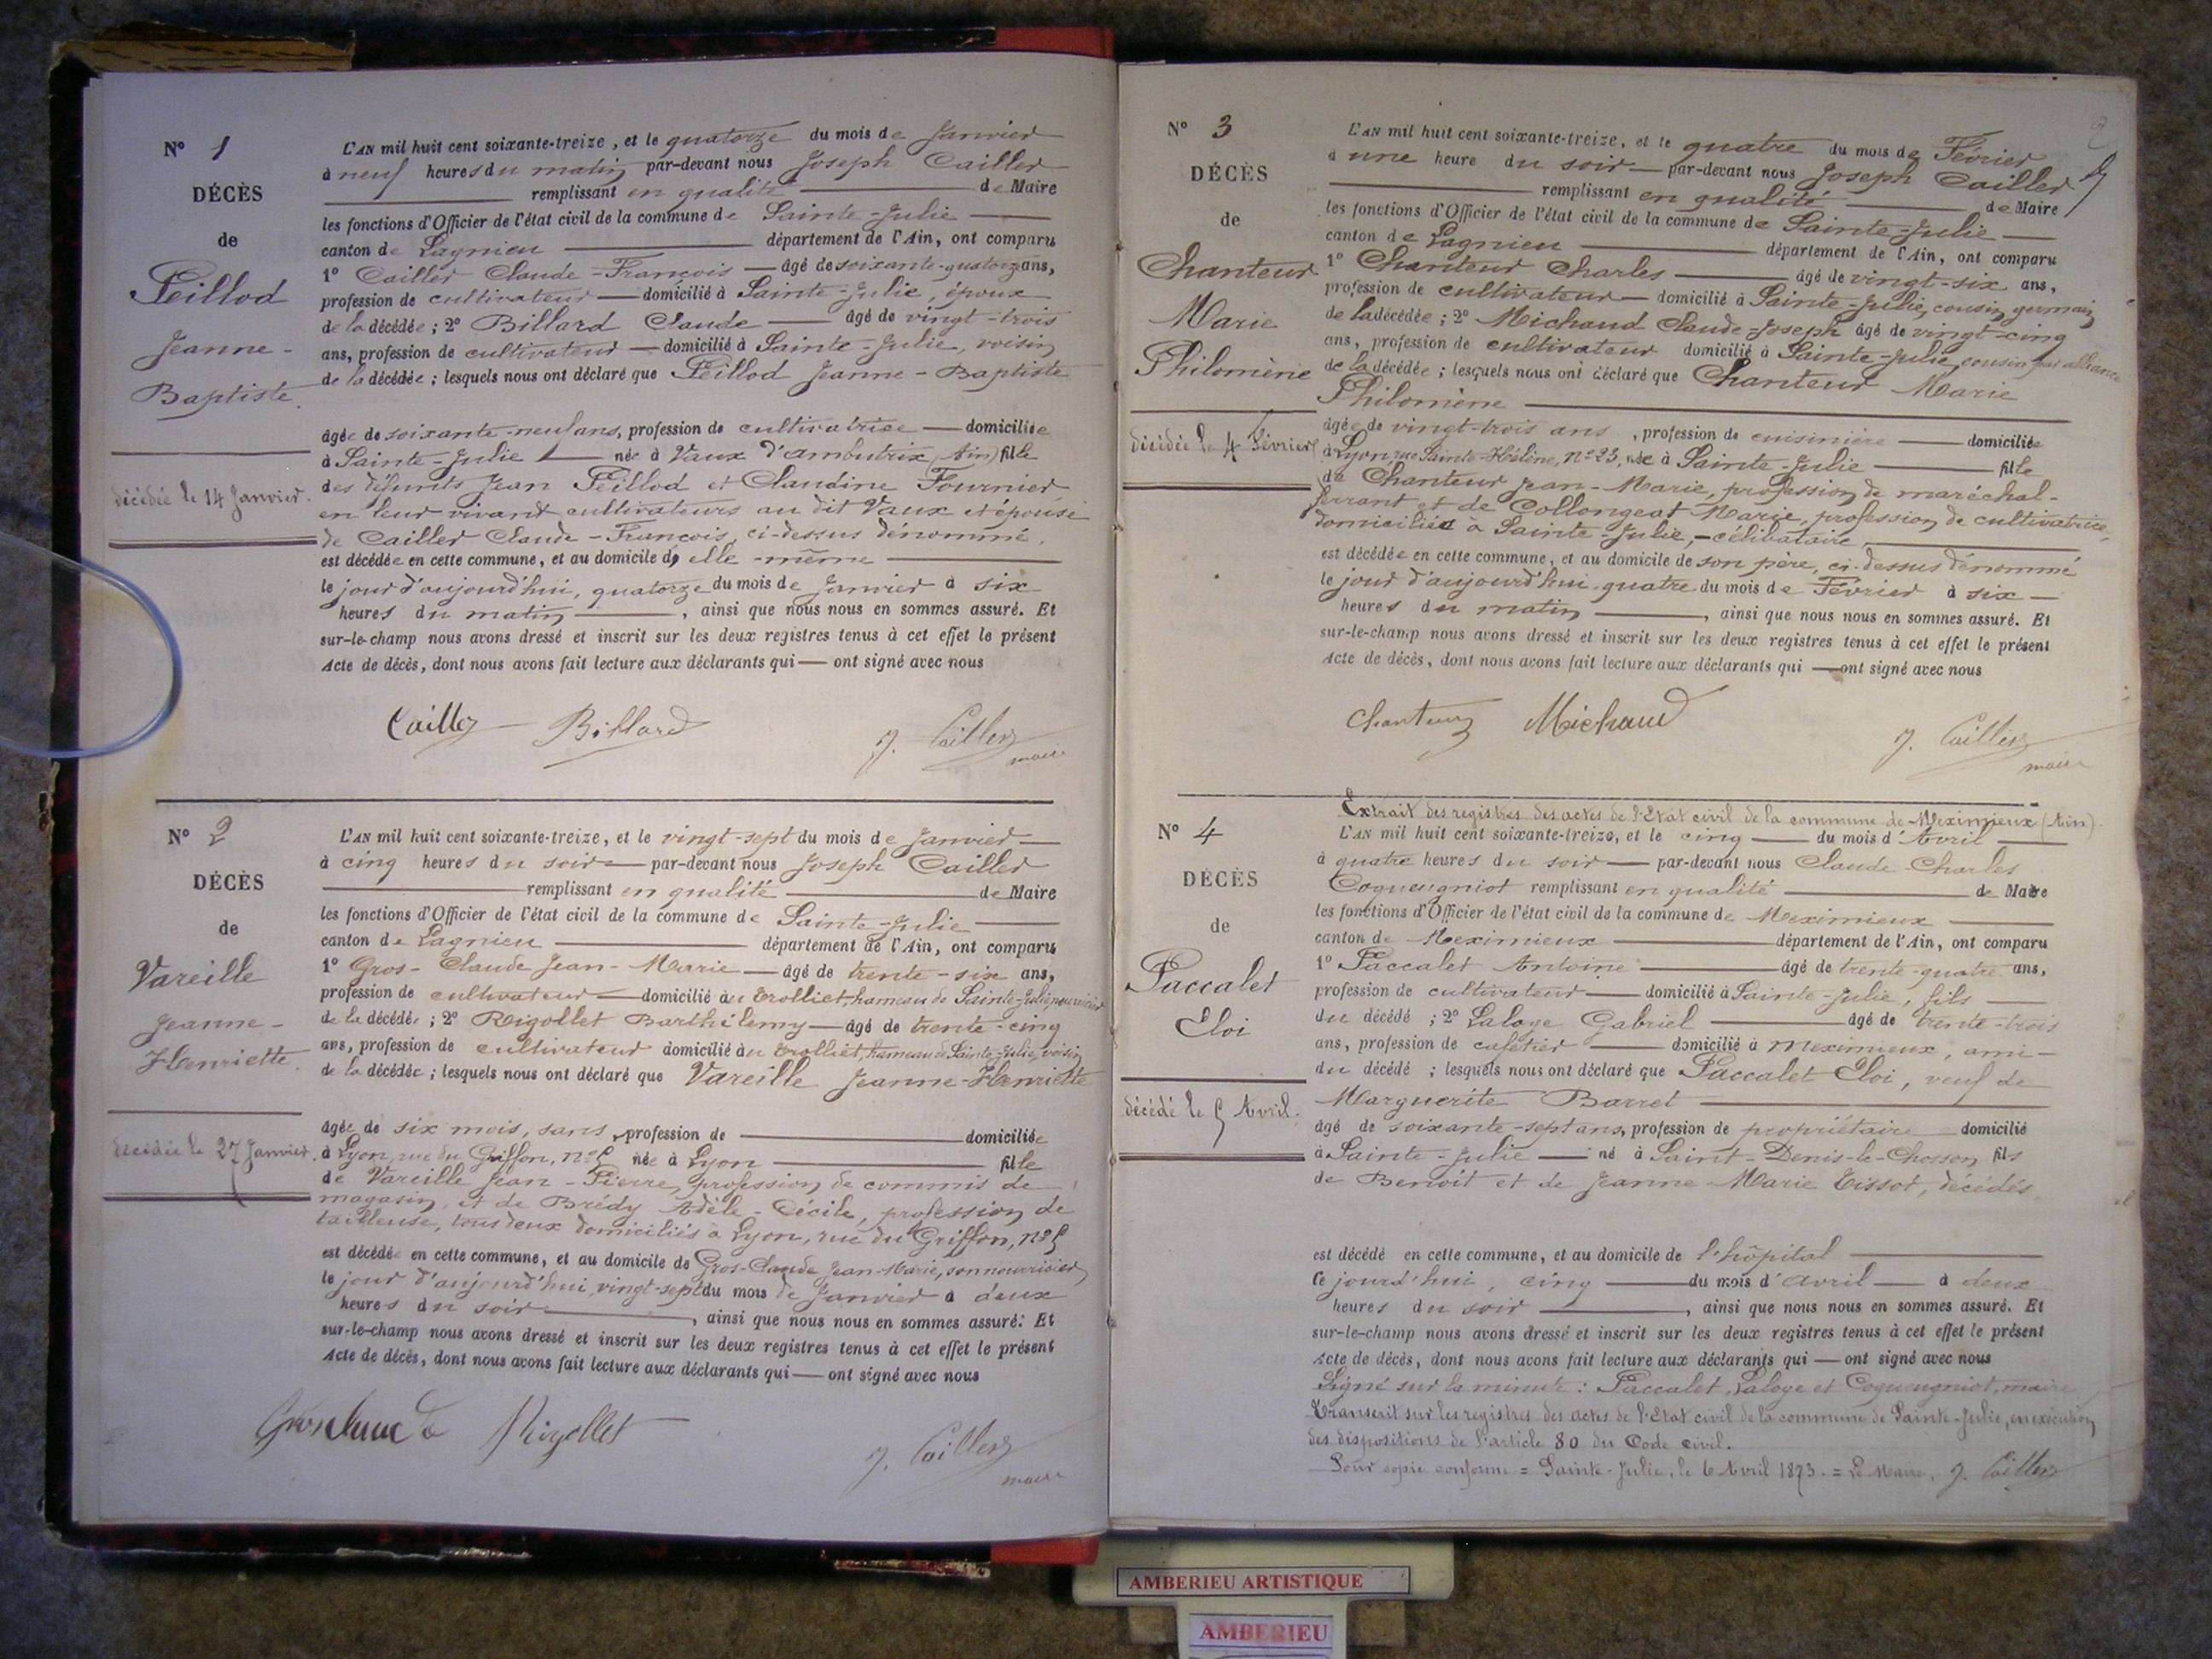 N° 1
DÉCÈS
de
Peillod
Jeanne-
Baptiste.
décédée le 14 Janvier.
L'AN mil huit cent soixante-treize, et le quatorze du mois de Janvier
à neuf heures du matin par-devant nous Joseph Cailler
remplissant en qualité de Maire
les fonctions d'Officier de l'état civil de la commune de Sainte-Julie
canton de Lagnieu département de l'Ain, ont comparu
1° Cailler Claude-François âgé de soixante-quatorze ans,
profession de cultivateur domicilié à Sainte-Julie, époux
de la décédée ; 2° Billard Claude âgé de vingt-trois
ans, profession de cultivateur domicilié à Sainte-Julie, voisin
de la décédée ; lesquels nous ont déclaré que Peillod Jeanne-Baptiste
âgée de soixante-neuf ans, profession de cultivatrice domiciliée
à Sainte-Julie née à Vaux d'ambutrix (Ain) fille
des défunts Jean Peillod et Claudine Fournier
en leur vivant cultivateurs au dit Vaux et épouse
de Cailler Claude-François, ci-dessus dénommé,
est décédée en cette commune, et au domicile d'elle-même
le jour d'aujourd'hui, quatorze du mois de Janvier à six
heures du matin, ainsi que nous nous en sommes assuré. Et
sur-le-champ nous avons dressé et inscrit sur les deux registres tenus à cet effet le présent
Acte de décès, dont nous avons fait lecture aux déclarants qui ont signé avec nous
Cailler Billard J. Cailler
maire
N° 2
DÉCÈS
de
Vareille
Jeanne-
Henriette.
décédée le 27 Janvier.
L'AN mil huit cent soixante-treize, et le vingt-sept du mois de Janvier
à cinq heures du soir par-devant nous Joseph Cailler
remplissant en qualité de Maire
les fonctions d'Officier de l'état civil de la commune de Sainte-Julie
canton de Lagnieu département de l'Ain, ont comparu
1° Gros-Claude Jean-Marie âgé de trente-six ans,
profession de cultivateur domicilié au Trolliet, hameau de Sainte-Julie, nourricier
de la décédée ; 2° Rigollet Barthélemy âgé de trente-cinq
ans, profession de cultivateur domicilié au Trolliet, hameau de Sainte-Julie, voisin
de la décédée ; lesquels nous ont déclaré que Vareille Jeanne-Henriette
âgée de six mois, sans profession de domiciliée
à Lyon, rue du Griffon, n° 5 née à Lyon fille
de Vareille Jean-Pierre, profession de commis de
magasin, et de Brédy Adèle-Cécile, profession de
tailleuse, tous deux domiciliés à Lyon, rue du Griffon, n° 5
est décédée en cette commune, et au domicile de Gros-Claude Jean-Marie, son nourricier
le jour d'aujourd'hui, vingt-sept du mois de Janvier à deux
heures du soir, ainsi que nous nous en sommes assuré. Et
sur-le-champ nous avons dressé et inscrit sur les deux registres tenus à cet effet le présent
Acte de décès, dont nous avons fait lecture aux déclarants qui ont signé avec nous
Rigollet J. Cailler
maire
N° 3
DÉCÈS
de
Chanteur
Marie
Philomène
décédée le 4 Février
L'AN mil huit cent soixante-treize, et le quatre du mois de Février
à une heure du soir par-devant nous Joseph Cailler
remplissant en qualité de Maire
les fonctions d'Officier de l'état civil de la commune de Sainte-Julie
canton de Lagnieu département de l'Ain, ont comparu
1° Chanteur Charles âgé de vingt-six ans,
profession de cultivateur domicilié à Sainte-Julie, cousin germain
de la décédée ; 2° Michaud Claude-Joseph âgé de vingt-cinq
ans, profession de cultivateur domicilié à Sainte-Julie, cousin par alliance
de la décédée ; lesquels nous ont déclaré que Chanteur Marie
Philomène
âgée de vingt-trois ans, profession de cuisinière domiciliée
à Lyon, rue Sainte-Hélène, n° 23, née à Sainte-Julie fille
de Chanteur Jean-Marie, profession de maréchal-
ferrant et de Collongeat Marie, profession de cultivatrice,
domiciliés à Sainte-Julie, - célibataire,
est décédée en cette commune, et au domicile de son père, ci-dessus dénommé
le jour d'aujourd'hui quatre du mois de Février à six
heures du matin, ainsi que nous nous en sommes assuré. Et
sur-le-champ nous avons dressé et inscrit sur les deux registres tenus à cet effet le présent
Acte de décès, dont nous avons fait lecture aux déclarants qui ont signé avec nous
Chanteur Michaud J. Cailler
maire
N° 4
DÉCÈS
de
Paccalet
Eloi
décédé le 5 Avril.
Extrait des registres des actes de l'Etat civil de la commune de Meximieux (Ain).
L'AN mil huit cent soixante-treize, et le cinq du mois d'Avril
à quatre heures du soir par-devant nous Claude-Charles
Coqueugniot remplissant en qualité de Maire
les fonctions d'Officier de l'état civil de la commune de Meximieux
canton de Meximieux département de l'Ain, ont comparu
1° Paccalet Antoine âgé de trente-quatre ans,
profession de cultivateur domicilié à Sainte-Julie, fils
du décédé ; 2° Laloge Gabriel âgé de trente-trois
ans, profession de cafetier domicilié à Meximieux, ami
du décédé ; lesquels nous ont déclaré que Paccalet Eloi, veuf de
Marguerite Barret
âgé de soixante-sept ans, profession de propriétaire domicilié
à Sainte-Julie né à Saint-Denis-le-Chosson fils
de Benoît et de Jeanne-Marie Tissot, décédés
est décédé en cette commune, et au domicile de l'hôpital
ce jourd'hui, cinq du mois d'avril à deux
heures du soir, ainsi que nous nous en sommes assuré. Et
sur-le-champ nous avons dressé et inscrit sur les deux registres tenus à cet effet le présent
Acte de décès, dont nous avons fait lecture aux déclarants qui ont signé avec nous
Signé sur la minute : Paccalet, Laloge et Coqueugniot, maire.
Transcrit sur les registres des actes de l'Etat civil de la commune de Sainte-Julie, en exécution
des dispositions de l'article 80 du Code civil.
Pour copie conforme = Sainte-Julie, le 6 Avril 1873. = Le Maire, J. Cailler
AMBERIEU ARTISTIQUE
AMBERIEU